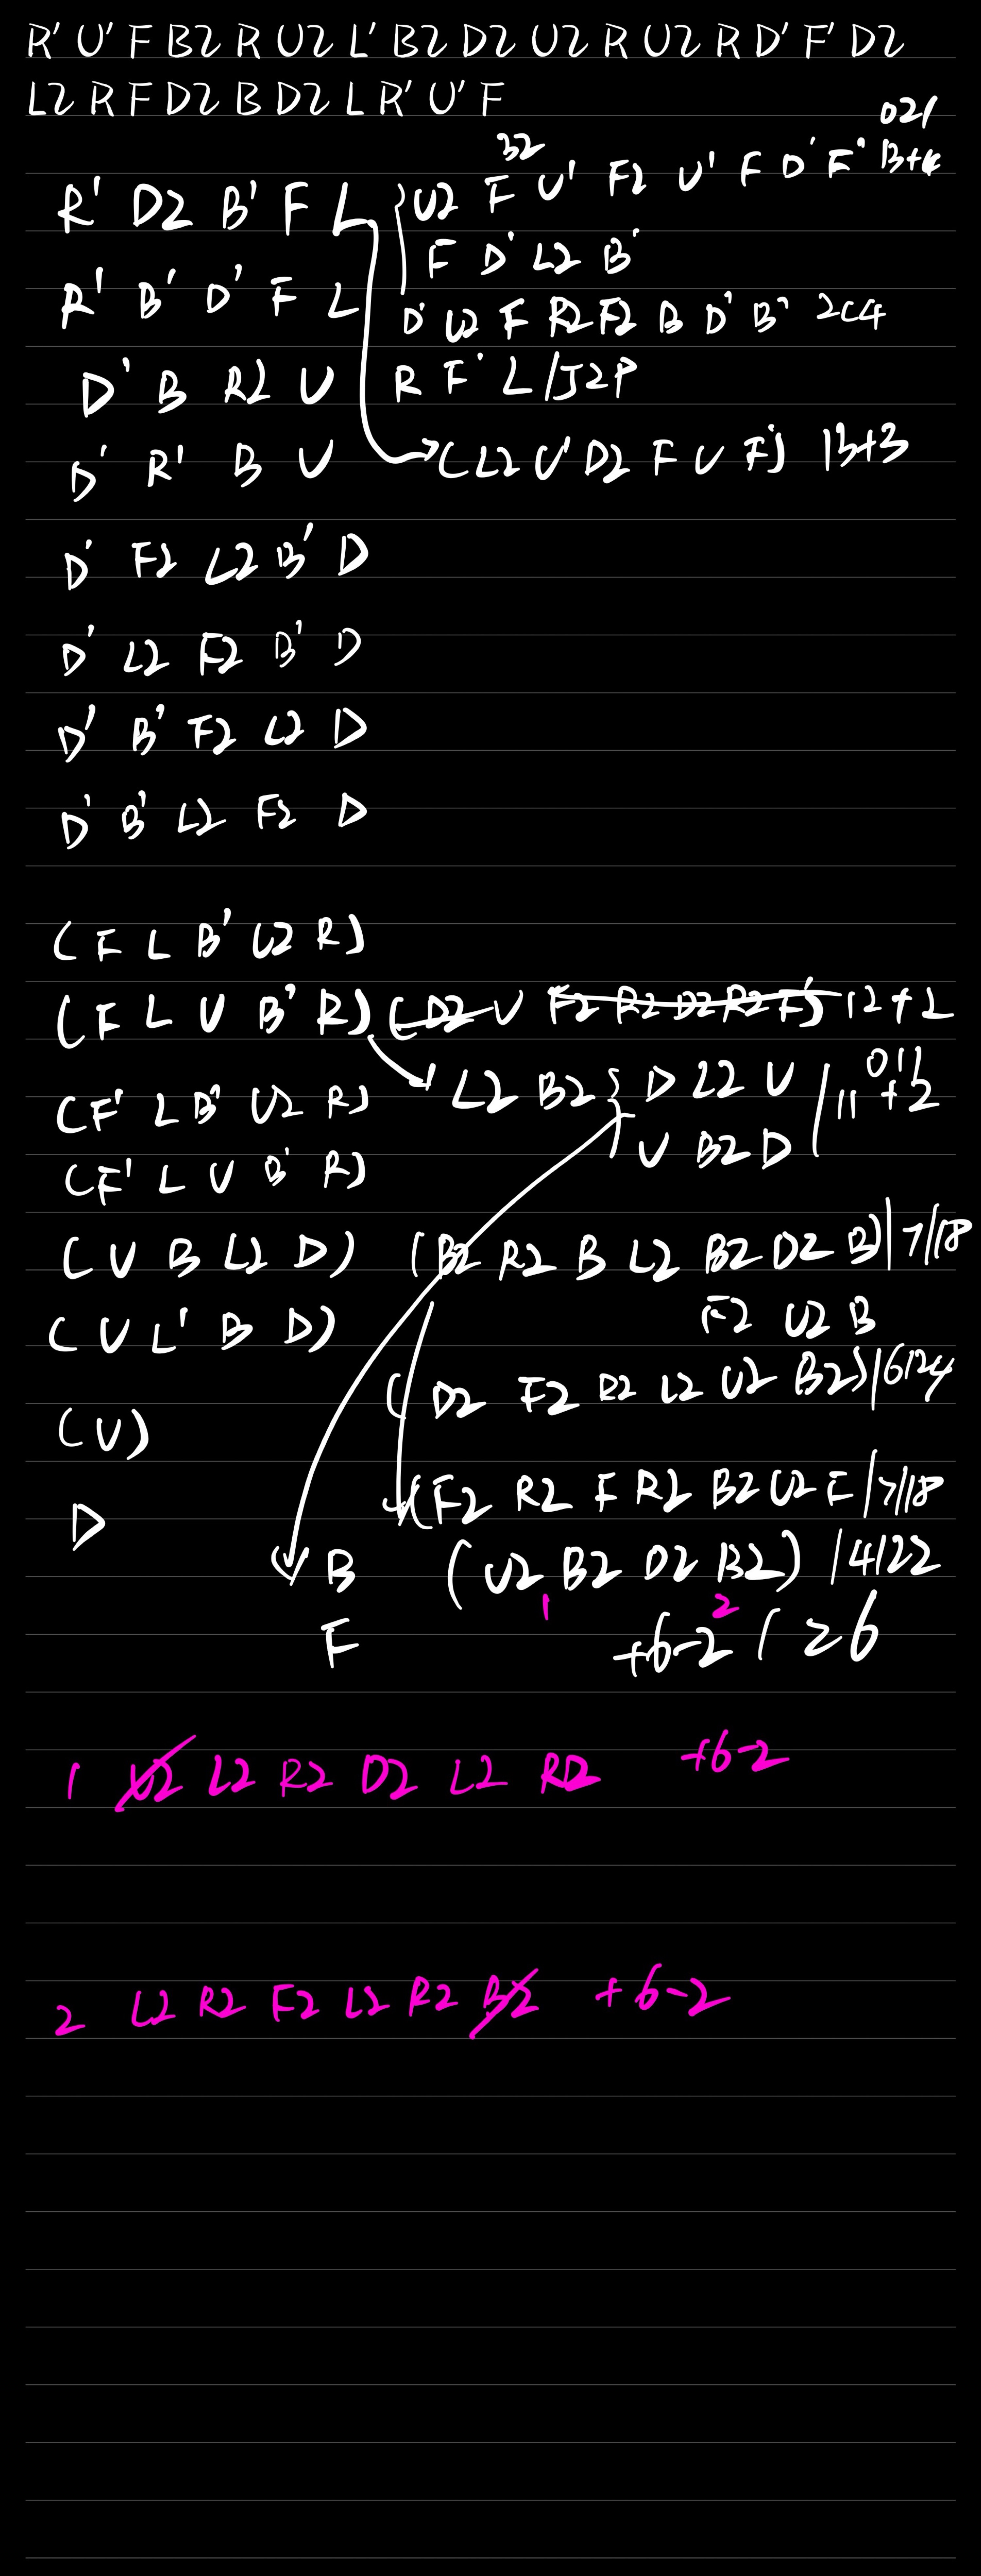 R' U' F B2 R U2 L' B2 D2 U2 R U2 R D' F' D2
L2 R F D2 B D2 L R' U' F
021
32
R' D2 B' F L U2 F U' F2 U' F D' F' B+4
F D' L2 B'
R' B' D' F L
D' U2 F R2 F2 B D' B' 2C4
D' B R2 U R F' L / J2P
D' R' B U (L2 U' D2 F U F') 13+3
D' F2 L2 B' D
D' L2 F2 B' D
D' B' F2 L2 D
D' B' L2 F2 D
(F L B' U2 R)
(F L U B' R) (D2 U F2 R2 D2 R2 F') 12+2
L2 B2 { D L2 U / 11+2
011
(F' L B' U2 R)
U B2 D
(F' L U B' R)
(U B L2 D) (B2 R2 B L2 B2 D2 B) | 7/18
(U L' B D) F2 U2 B
(D2 F2 D2 L2 U2 B2) | 6/24
(U)
(F2 R2 F R2 B2 U2 F / 7/18
D
B (U2 B2 D2 B2) / 4/22
1 2
F +6-2 / 26
1 U2 L2 R2 D2 L2 R2 +6-2
2 L2 R2 F2 L2 R2 B2 +6-2